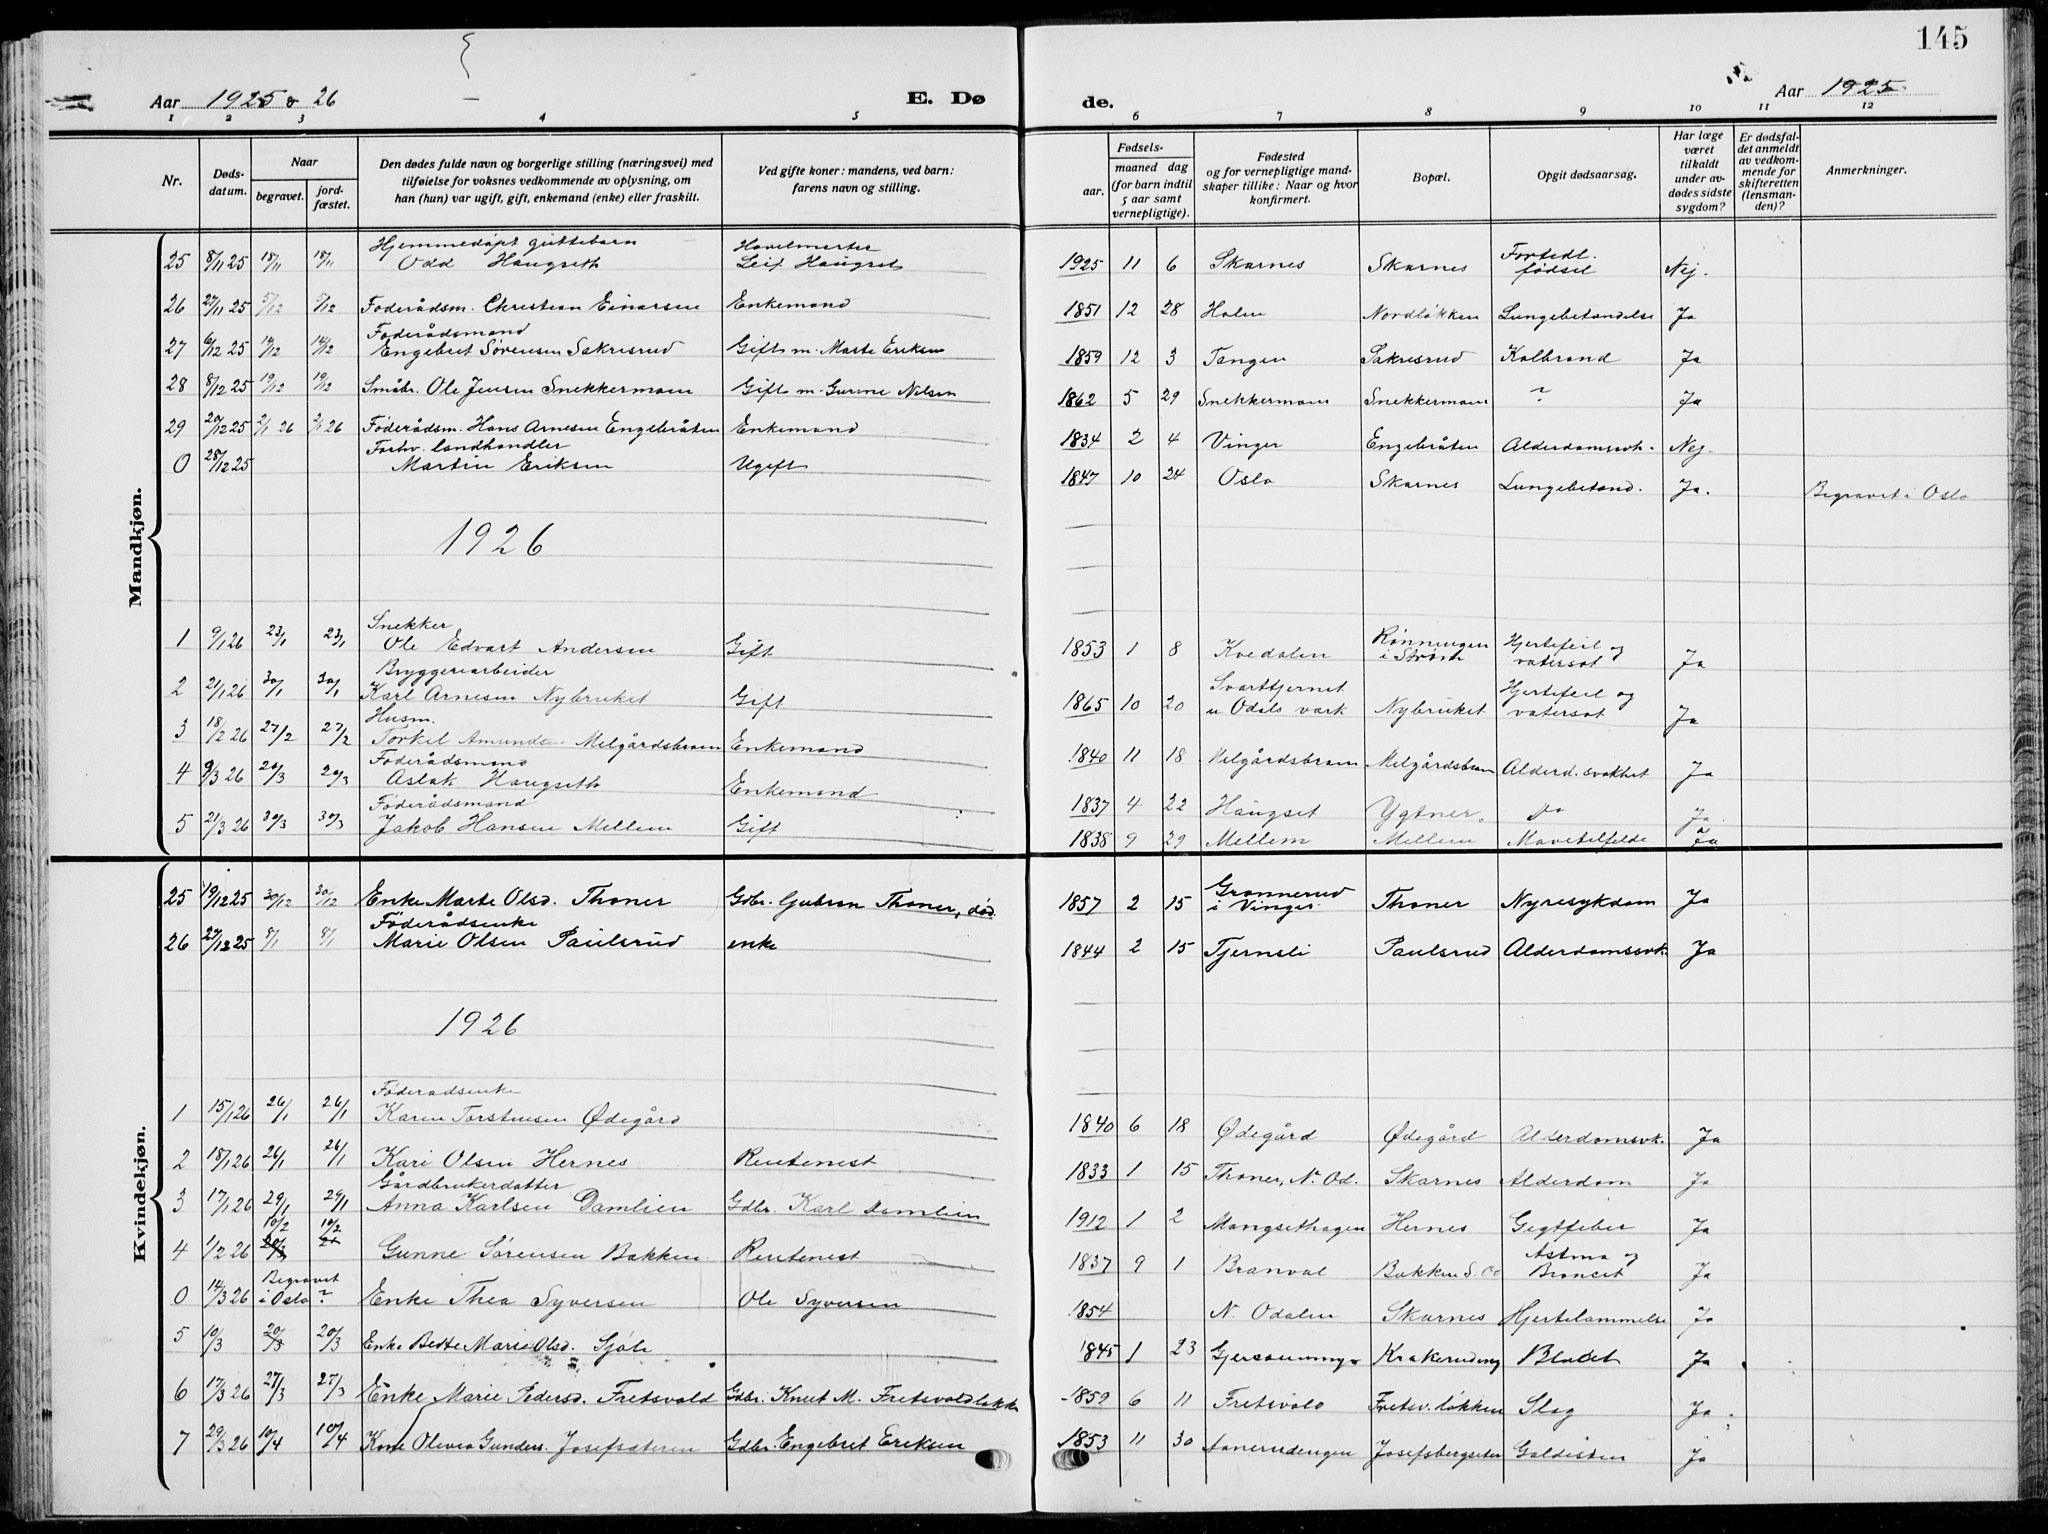 145
Aar 1925 & 26
E. Dø
de.
Aar 1925
1 2 3 4 5 6 7 8 9 10 11 12
Nr.
Døds-
datum.
Naar
begravet.
jord-
fæstet.
Den dødes fulde navn og borgerlige stilling (næringsvei) med
tilføielse for voksnes vedkommende av oplysning, om
han (hun) var ugift, gift, enkemand (enke) eller fraskilt.
Ved gifte koner: mandens, ved barn:
farens navn og stilling.
Fødsels-
aar.
maaned dag
(for barn indtil
5 aar samt
vernepligtige).
Fødested
og for vernepligtige mand-
skaper tillike: Naar og hvor
konfirmert.
Bopæl.
Opgit dødsaarsag.
Har læge
været
tilkaldt
under av-
dødes sidste
sygdom?
Er dødsfal-
det anmeldt
av vedkom-
mende for
skifteretten
(lensman-
den)?
Anmerkninger.
Mandkjøn.
25 8/11 25 18/11 18/11 Hjemmedøpt guttebarn
Odd Haugseth Leif Haugset 1925 11 6 Skarnes Skarnes Fortidl.
fødsel Nej.
26 27/11 25 5/12 5/12 Føderådsm. Christian Einarsen Enkemand 1851 12 28 Holen Nordløkken Lungebetændelse Ja
Føderådsmand
27 6/12 25 14/12 14/12 Engebret Sørensen Sakrisrud Gift m. Marte Eriksen 1859 12 3 Tangen Sakrisrud Kolbrand Ja
28 8/12 25 19/12 19/12 Småbr. Ole Jensen Snekkermoen Gift m. Gunne Nilsen 1862 5 29 Snekkermoen Snekkermoen ? Ja
29 20/12 25 2/1 26 2/1 26 Føderådsm. Hans Arnesen Engebråten Enkemand 1834 2 4 Vinger Engebråten Alderdomssvk. Nej.
Forhv. landhandler
0 28/12 25 Martin Eriksen Ugift 1847 10 24 Oslo Skarnes Lungebetænd. Ja. Begravet i Oslo
1926
Snekker
1 9/1 26 23/1 23/1 Ole Edvart Andersen Gift 1853 1 8 Kvedalen Rønningen
i Strøm Hjertefeil og
vatersot Ja
Bryggeriarbeider
2 21/1 26 30/1 30/1 Karl Arnesen Nybruket Gift 1865 10 20 Svarttjernet
u Odals værk Nybruket Hjertefeil og
vatersot Ja
Husm.
3 18/2 26 27/2 27/2 Torkel Amundsen Melgårdsbraen Enkemand 1840 11 18 Melgårdsbraen Melgårdsbraen Alderd. svakhet Ja
Føderådsmand
4 9/3 26 20/3 20/3 Aslak Haugseth Enkemand 1837 4 22 Haugset Ygtner. Do Ja
Føderådsmand
5 21/3 26 30/3 30/3 Jakob Hansen Mellem Gift 1838 9 29 Mellem Mellem Mavetilfelde Ja
Kvindekjøn.
25 19/12 25 30/12 30/12 Enke Marte Olsd. Thoner Gdbr. Gubran Thoner, død 1857 2 15 Grønnerud
i Vinger Thoner Nyresykdom Ja
Føderådsenke
26 27/12 25 8/1 8/1 Marie Olsen Paulsrud enke 1844 2 15 Tjernsli Paulsrud Alderdomssvk. Ja
1926
Føderadsenke
1 15/1 26 26/1 26/1 Karen Torstensen Ødegård 1840 6 18 Ødegård Ødegård Alderdomsvk. Ja
2 18/1 26 26/1 26/1 Kari Olsen Hernes Rentenist 1833 1 15 Thoner, N. Od. Skarnes Alderdom Ja
Gårdbrukerdatter
3 17/1 26 29/1 29/1 Anna Karlsen Damlien Gdbr. Karl Damlien 1912 1 2 Mangsethagen Hernes Gigtfeber Ja
4 1/2 26 10/2 10/2 Gunne Sørensen Bakken Rentenist 1837 9 1 Branval Bakken S. Od Astma og
Broncit Ja
0 14/3 26 Begravet
i Oslo ? Enke Thea Syversen Ole Syversen 1854 N. Odalen Skarnes Hjertelammelse Ja
5 10/3 20/3 20/3 Enke Berte Marie Olsd. Sjøli 1845 1 23 Krakerudeng Ja
6 17/3 26 27/3 27/3 Enke Marie Pedersd. Fretsvold Gdbr. Knut M. Fretsvoldløkk 1859 6 11 Fretsvold Fretsv. løkken Slag Ja
7 29/3 26 10/4 10/4 Kone Olivia Gunders. Josefsæteren Gdbr. Engebrit Eriksen 1853 11 30 Josefsbergseter Galdesten Ja